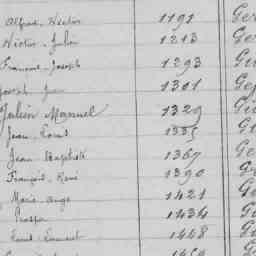 Alfred-Victor 1191 Ger
Victor-Julien 1213 Ger
François-Joseph 1293 Gu
Joseph Jean 1301 Ge
Julien Manuel 1329 Gu
Jean Louis 1335 Ge
Jean Baptiste 1367 Ge
François, René 1390 G
Marie Ange 1421 Ge
Prosper 1434 Ge
Louis 1448 Gu